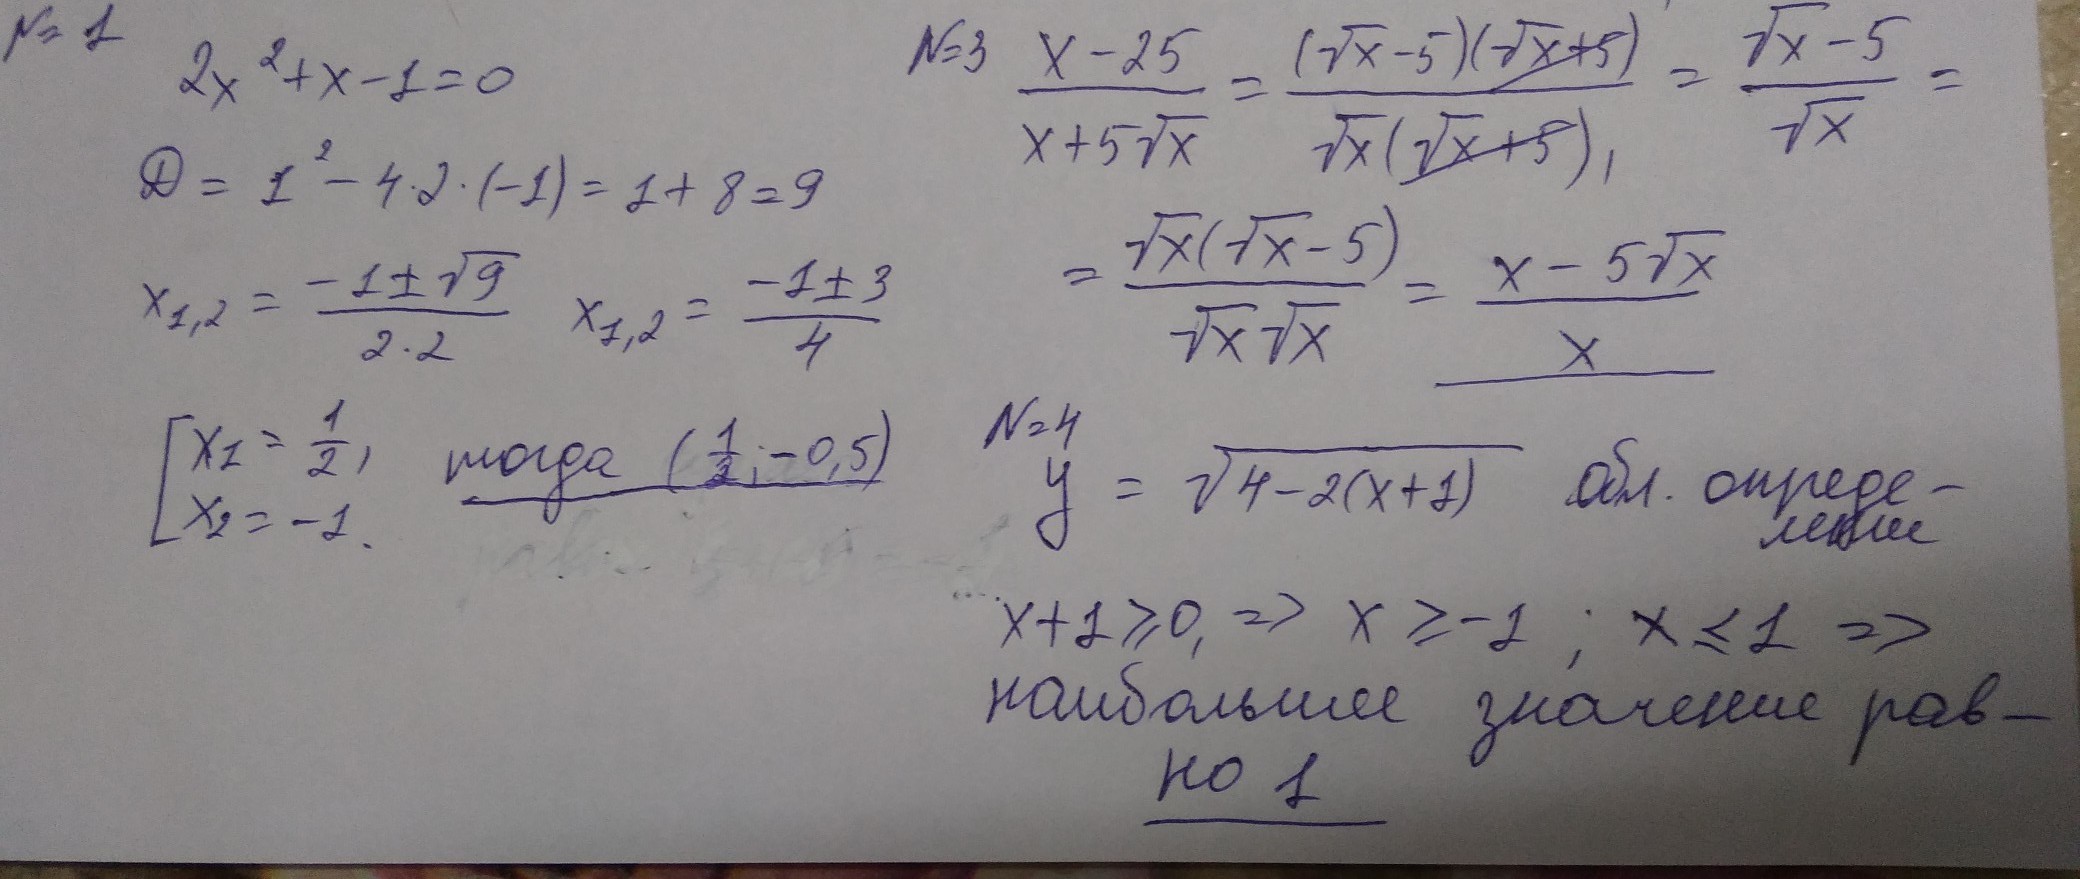 N=1
2x²+x-1=0
D = 1²-4·2·(-1)=1+8=9
x₁,₂ = (-1±√9)/(2·2) x₁,₂ = (-1±3)/4
[x₁ = 1/2,
x₂ = -1.
тогда (1/2; -0,5)
N=3 (x-25)/(x+5√x) = ((√x-5)(√x+5))/(√x(√x+5)), = (√x-5)/√x =
= (√x(√x-5))/(√x√x) = (x-5√x)/x
N=4
y = √(4-2(x+1)) обл. опреде-
ление
x+1⩾0, => x ≥ -1 ; x ≤ 1 =>
наибольшее значение рав-
но 1